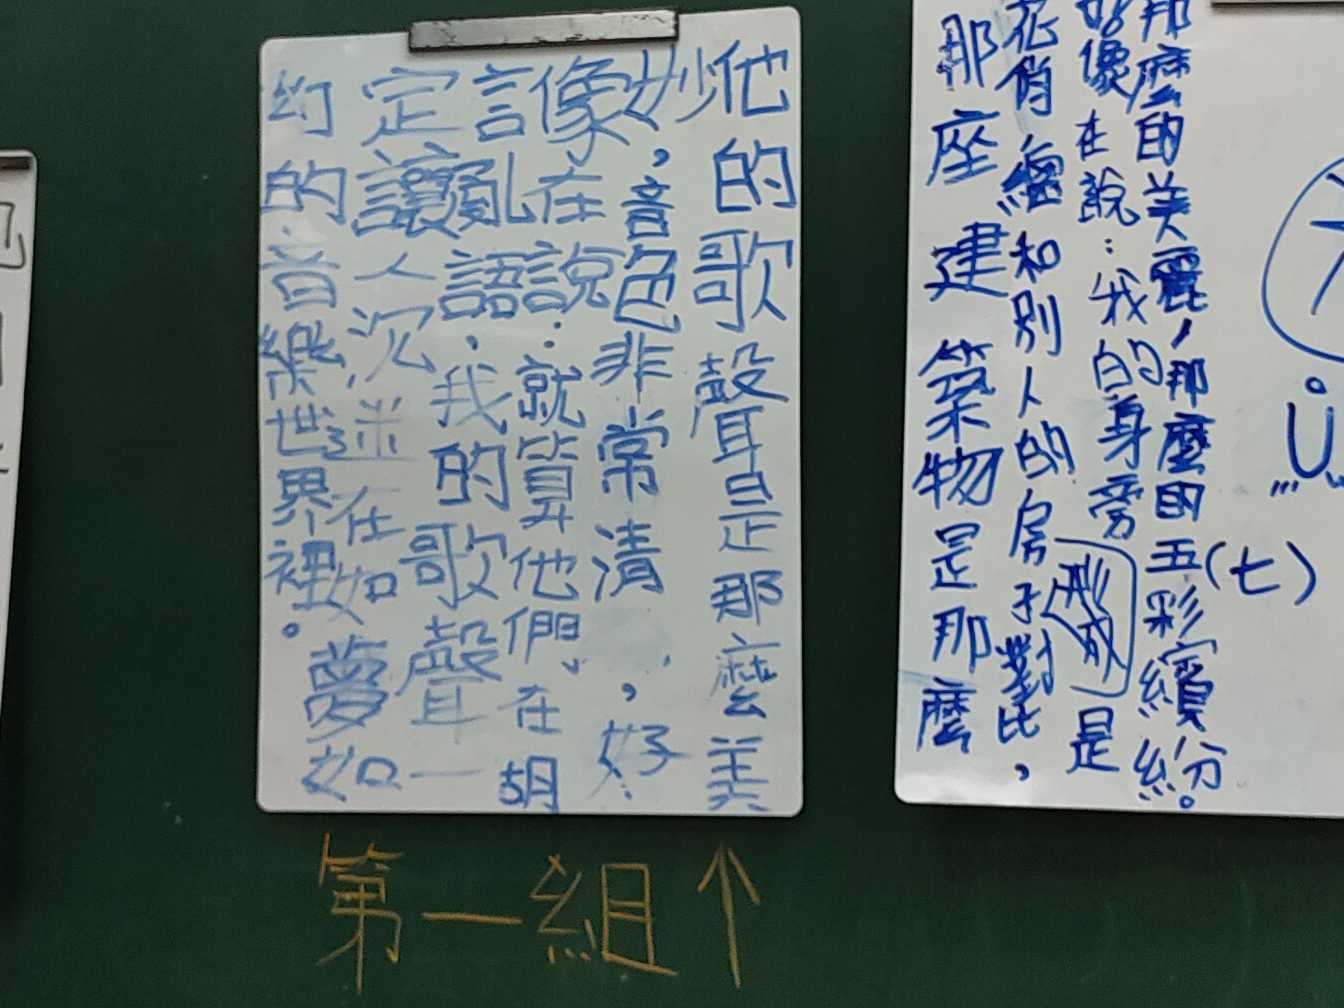 他的歌聲是那麼美
妙，音色非常清，好
像在說：就算他們在胡
言亂語，我的歌聲一
定讓人沉迷在如夢如
幻的音樂世界裡。
第一組↑
那座建築物是那麼
花俏總和別人的房子對比，
好像在說：我的身旁是
那麼的美麗，那麼的五彩繽紛。
(七)